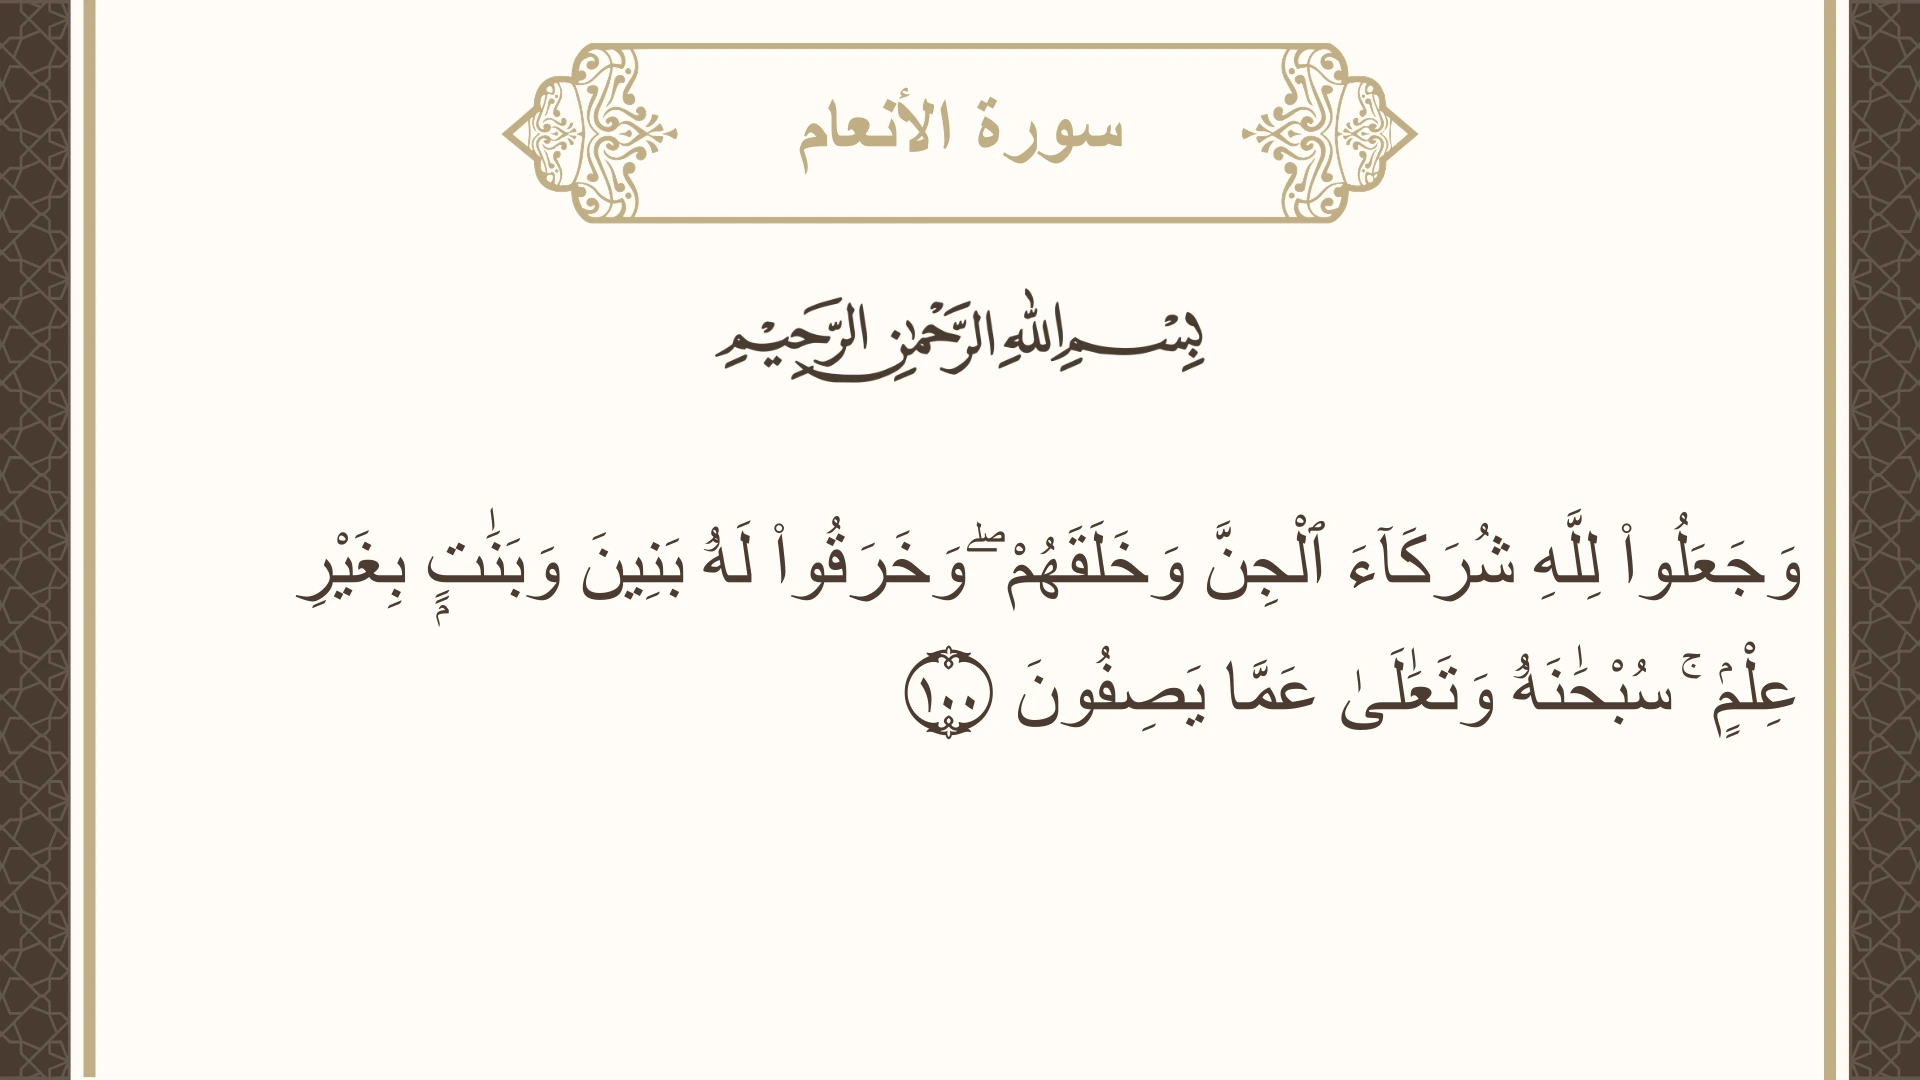 سورة الأنعام
بِسْمِ اللهِ الرَّحْمٰنِ الرَّحِيْمِ
وَجَعَلُوا۟ لِلَّهِ شُرَكَآءَ ٱلْجِنَّ وَخَلَقَهُمْ ۖ وَخَرَقُوا۟ لَهُۥ بَنِينَ وَبَنَـٰتٍۭ بِغَيْرِ
عِلْمٍۢ ۚ سُبْحَـٰنَهُۥ وَتَعَـٰلَىٰ عَمَّا يَصِفُونَ ١٠٠